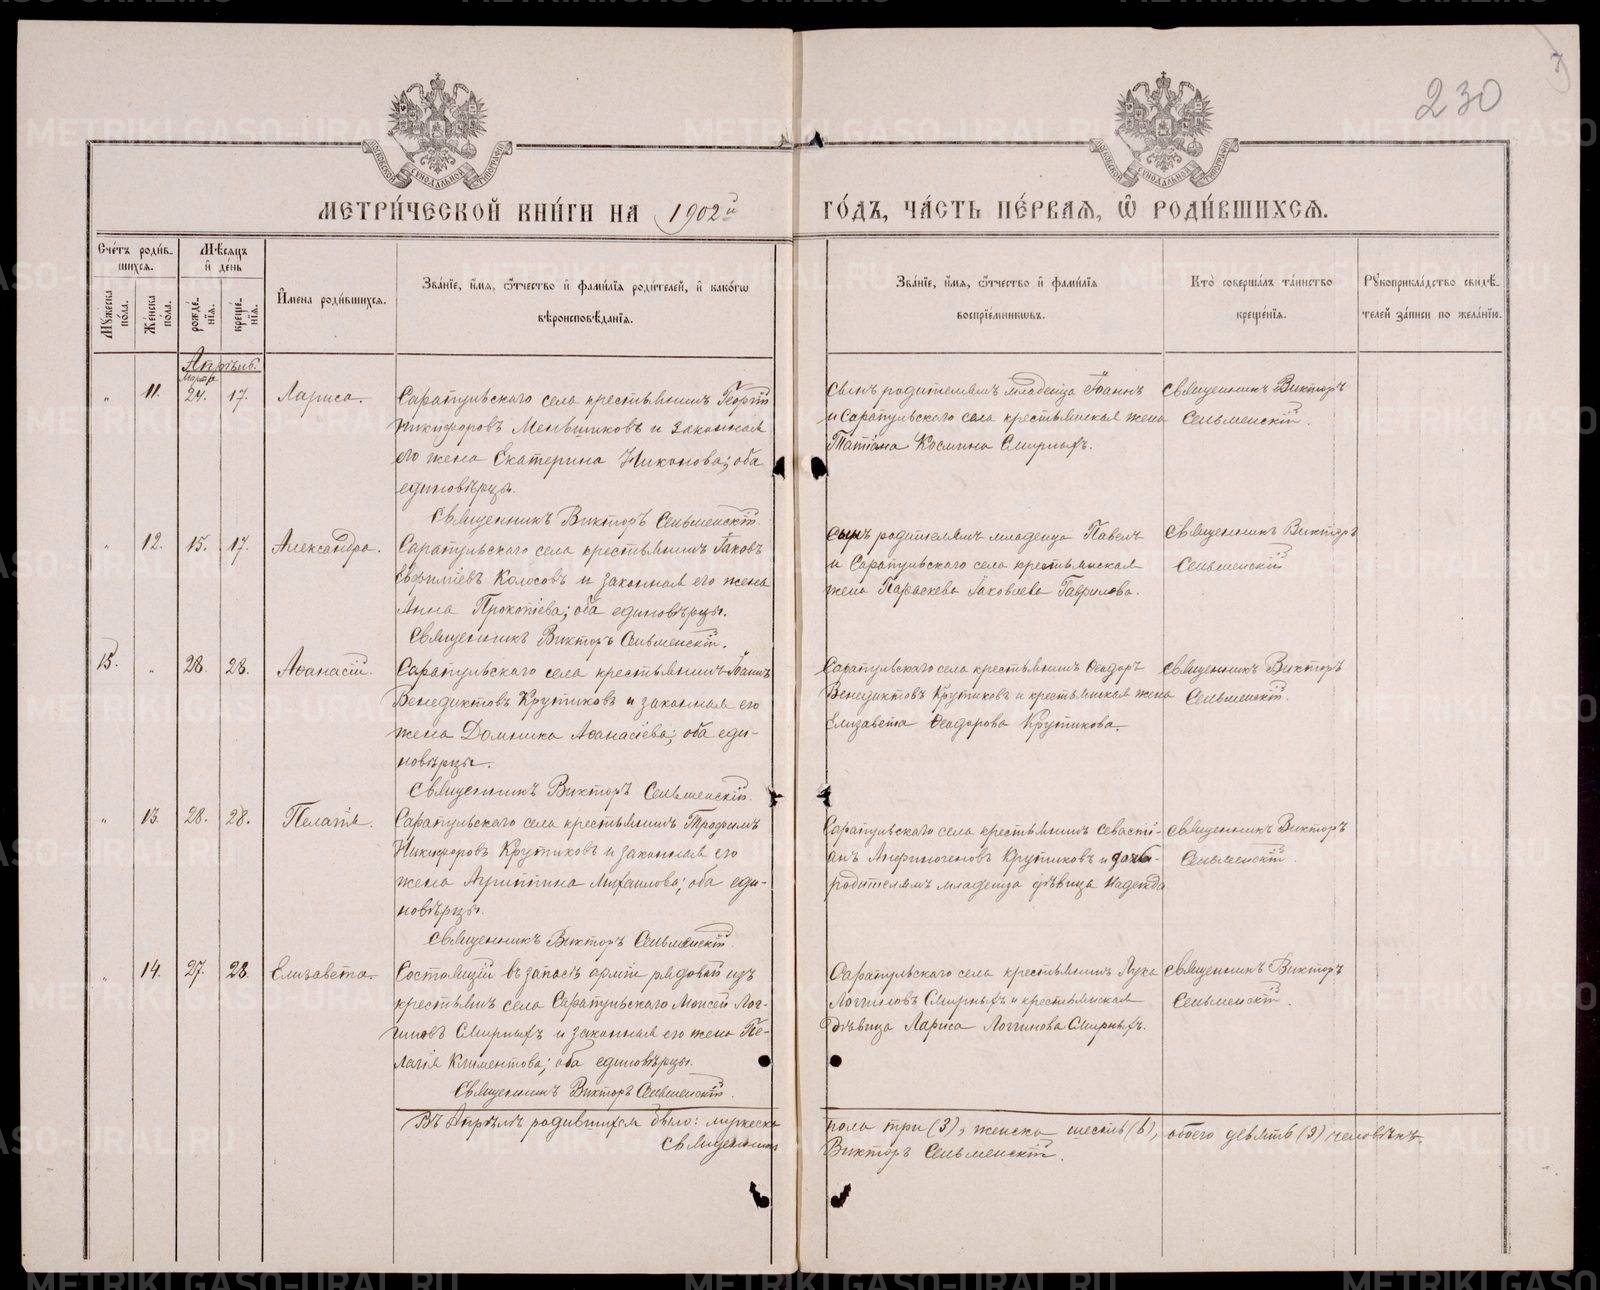 230
МЕТРИ́ЧЕСКОЙ КНИ́ГИ НА 1902й ГО́ДЪ, ЧА́СТЬ ПЕ́РВАЯ, Ѿ РОДИ́ВШИХСЯ.
Сче́тъ роди́в-
шихся.
Мꙋжеска по́ла.
Же́нска по́ла.
Мѣ́сяцъ
и҆ де́нь
рожде́-
нїя.
креще́-
нїя.
И҆мена роди́вшихся.
Зва́нїе, и҆́мя, ѻ҆́тчество и҆ фами́лїя роди́телей, и҆ како́гѡ
вѣроисповѣ́данїя.
Зва́нїе, и҆́мя, ѻ҆́тчество и҆ фами́лїя
воспрїе́мникѡвъ.
Кто̀ соверша́лъ та́инство
креще́нїя.
Рꙋкоприкла́дство свидѣ́-
телей за́писи по жела́нїю.
Апрѣль.
Марта
" 11. 24. 17. Лариса.
Сарапульскаго села крестьянинъ Георгій
Никифоровъ Меньшиковъ и законная
его жена Екатерина Никонова; оба
единовѣрцы.
Священникъ Викторъ Сельменскій.
Сынъ родителямъ младенца Іоаннъ
и Сарапульскаго села крестьянская жена
Татіана Космина Смирныхъ.
Священникъ Викторъ
Сельменскій.
" 12. 15. 17. Александра.
Сарапульскаго села крестьянинъ Іаковъ
Евфиміевъ Колосовъ и законная его жена
Анна Прокопіева; оба единовѣрцы.
Священникъ Викторъ Сельменскій.
Сынъ родителямъ младенца Павелъ
и Сарапульскаго села крестьянская
жена Параскева Іаковлева Гаврилова.
Священникъ Викторъ
Сельменскій
15. " 28. 28. Аѳанасій.
Сарапульскаго села крестьянинъ Іоаннъ
Венедиктовъ Крутиковъ и законная его
жена Домника Аѳанасіева; оба еди-
новѣрцы.
Священникъ Викторъ Сельменскій.
Сарапульскаго села крестьянинъ Ѳеодоръ
Венедиктовъ Крутиковъ и крестьянская жена
Елизавета Ѳеодорова Крутикова.
Священникъ Викторъ
Сельменскій.
" 13. 28. 28. Пелагія.
Сарапульскаго села крестьянинъ Трофимъ
Никифоровъ Крутиковъ и законная его
жена Агриппина Михаилова; оба еди-
новѣрцы.
Священникъ Викторъ Сельменскій.
Сарапульскаго села крестьянинъ Севасті-
анъ Анфиногеновъ Крутиковъ и дочь
родителямъ младенца дѣвица Надежда
Священникъ Викторъ
Сельменскій.
" 14. 27. 28. Елизавета.
Состоящій въ запасѣ арміи рядовой изъ
крестьянъ села Сарапульскаго Моисей Лог-
гиновъ Смирныхъ и законная его жена Пе-
лагія Климентова; оба единовѣрцы.
Священникъ Викторъ Сельменскій.
Сарапульскаго села крестьянинъ Лука
Логгиновъ Смирныхъ и крестьянская
дѣвица Лариса Логгинова Смирныхъ.
Священникъ Викторъ
Сельменскій.
Въ Апрѣлѣ родившихся было: мужеска пола три (3), женска шесть (6), обоего девять (9) человѣкъ.
Священникъ Викторъ Сельменскій.
METRIKI.GASO-URAL.RU